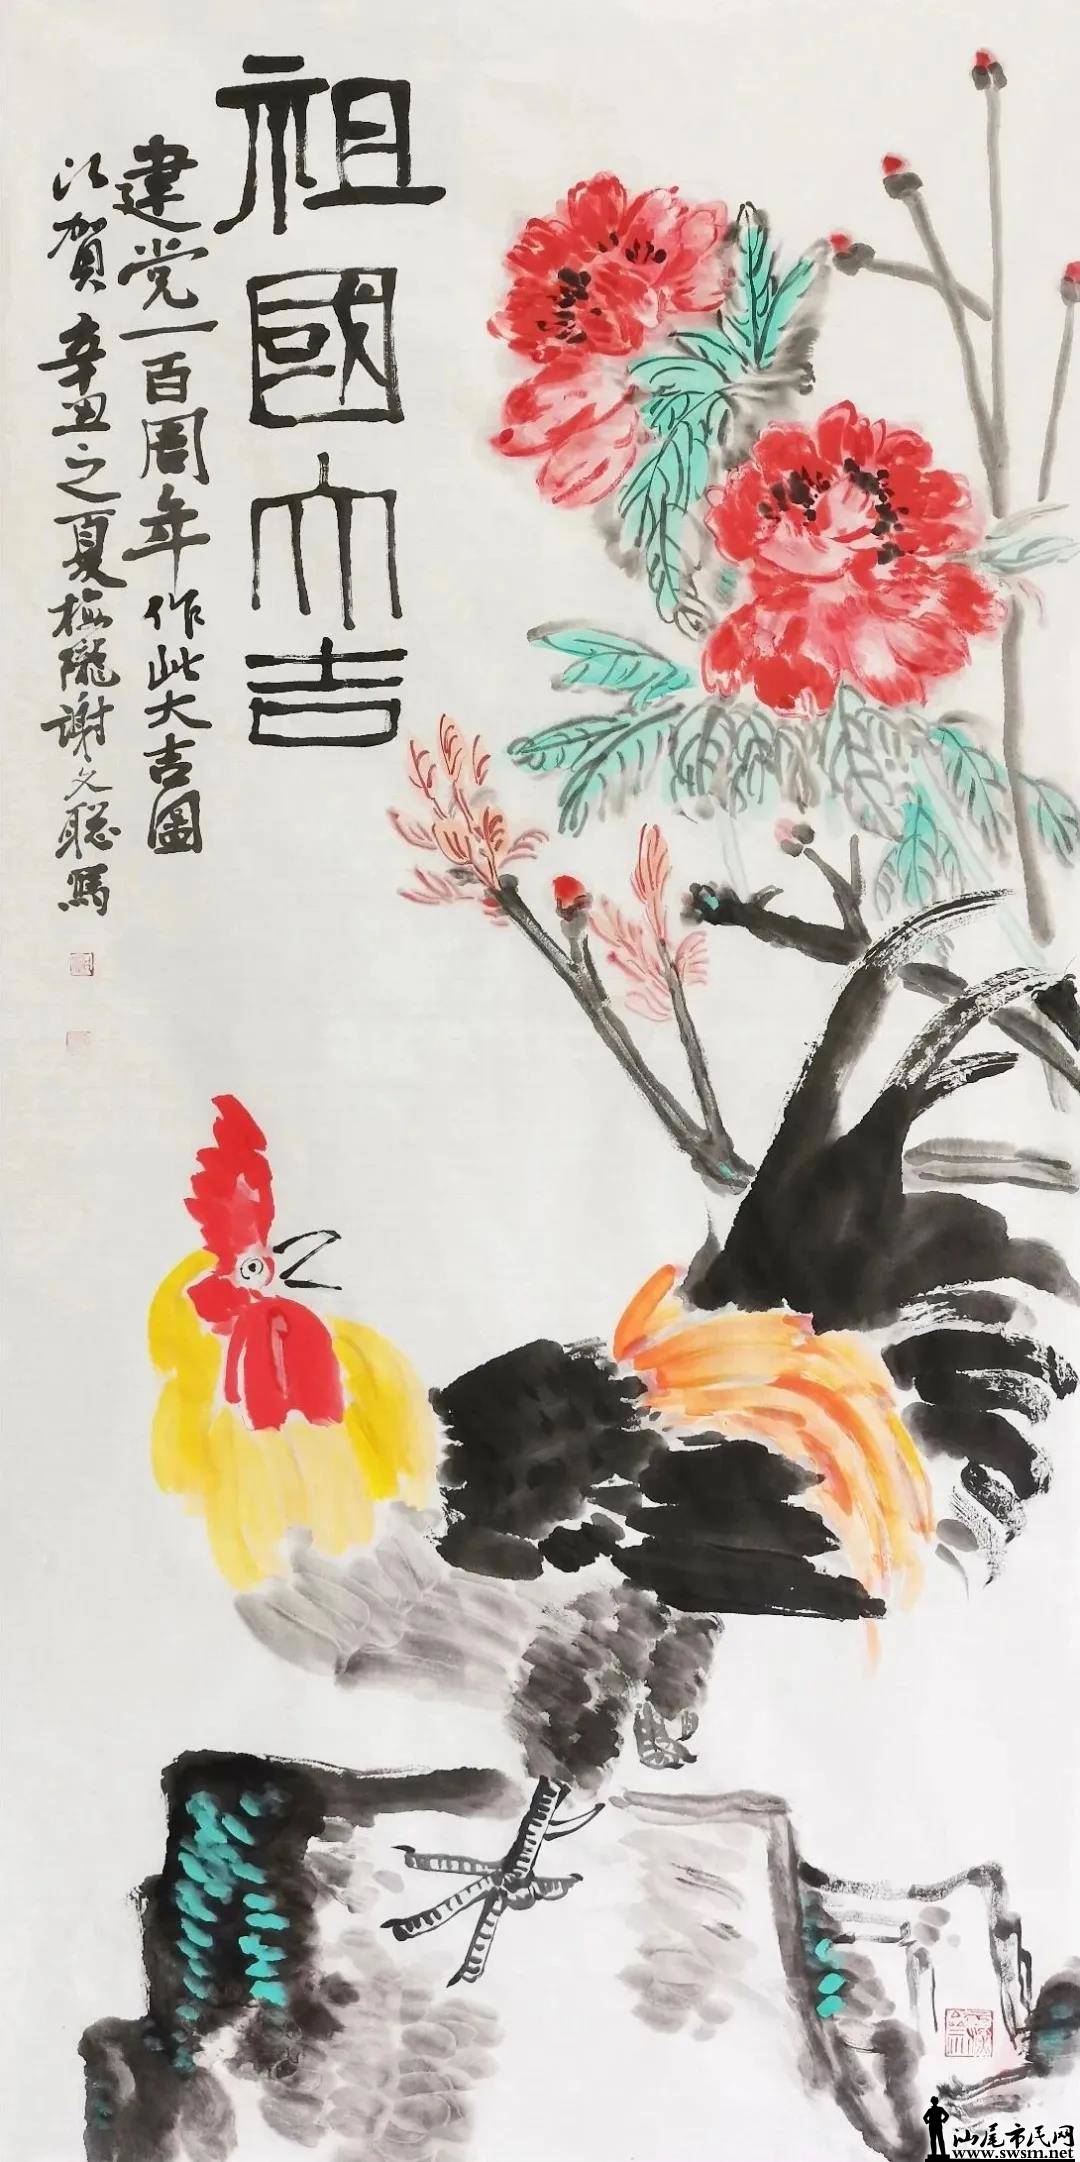 祖國大吉
建党一百周年作此大吉圖
以賀 辛丑之夏梅隴謝文聪寫
汕尾市民网
www.swsm.net